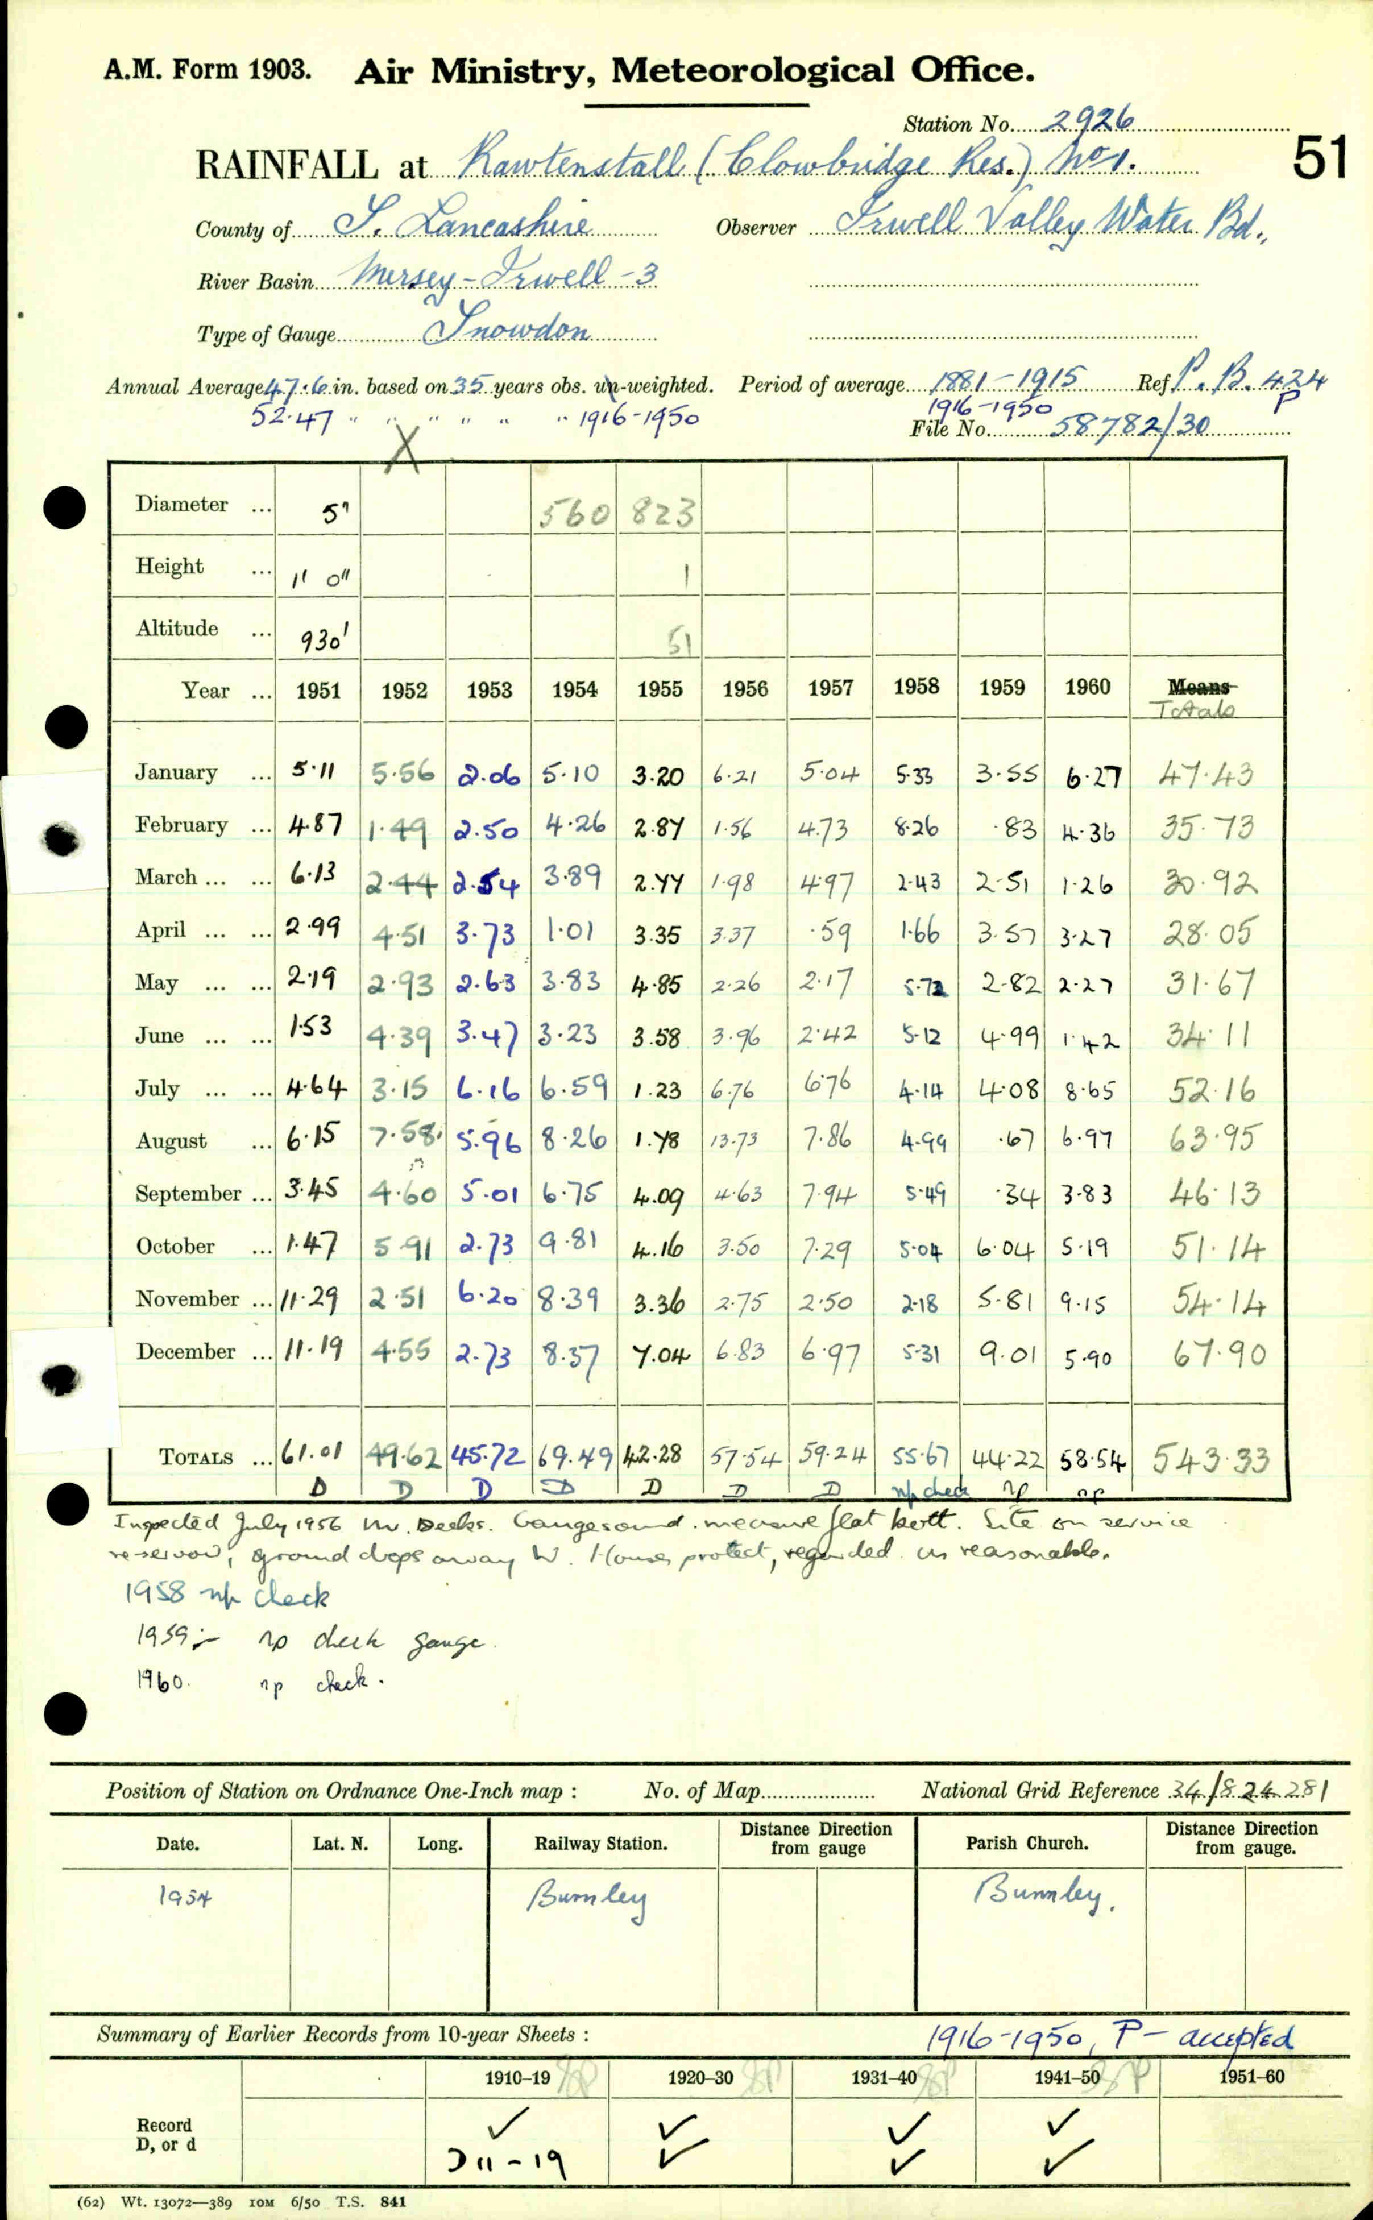 A.M. Form 1903. Air Ministry, Meteorological Office.
Station No. 2926
51
RAINFALL at Rawtenstall (Clowbridge Res.) No 1.
County of S. Lancashire Observer Irwell Valley Water Bd.,
River Basin Mersey-Irwell-3
Type of Gauge Snowdon
Annual Average 47.6 in. based on 35 years obs. un-weighted. Period of average 1881-1915 Ref P.B. 424
52.47 " " " " " " 1916-1950 1916-1950 P
File No. 58782/30
X
Diameter ... 5" 560 823
Height ... 1' 0" 1
Altitude ... 930' 51
Year ... 1951 1952 1953 1954 1955 1956 1957 1958 1959 1960 Means
Totals
January ... 5.11 5.56 2.06 5.10 3.20 6.21 5.04 5.33 3.55 6.27 47.43
February ... 4.87 1.49 2.50 4.26 2.87 1.56 4.73 8.26 .83 4.36 35.73
March ... ... 6.13 2.44 2.54 3.89 2.77 1.98 4.97 2.43 2.51 1.26 30.92
April ... ... 2.99 4.51 3.73 1.01 3.35 3.37 .59 1.66 3.57 3.27 28.05
May ... ... 2.19 2.93 2.63 3.83 4.85 2.26 2.17 5.72 2.82 2.27 31.67
June ... ... 1.53 4.39 3.47 3.23 3.58 3.96 2.42 5.12 4.99 1.42 34.11
July ... ... 4.64 3.15 6.16 6.59 1.23 6.76 6.76 4.14 4.08 8.65 52.16
August ... 6.15 7.58 5.96 8.26 1.78 13.73 7.86 4.99 .67 6.97 63.95
September ... 3.45 4.60 5.01 6.75 4.09 4.63 7.94 5.49 .34 3.83 46.13
October ... 1.47 5.91 2.73 9.81 4.16 3.50 7.29 5.04 6.04 5.19 51.14
November ... 11.29 2.51 6.20 8.39 3.36 2.75 2.50 2.18 5.81 9.15 54.14
December ... 11.19 4.55 2.73 8.37 7.04 6.83 6.97 5.31 9.01 5.90 67.90
TOTALS ... 61.01 49.62 45.72 69.49 42.28 57.54 59.24 55.67 44.22 58.54 543.33
D D D D D D D np check np np
Inspected July 1956 Mr. Deeks. Gauge sound. measure flat bott. Site on service
reservoir, ground drops away W. House protect, regarded as reasonable.
1958 np check
1959:- np check gauge.
1960. np check.
Position of Station on Ordnance One-Inch map : No. of Map National Grid Reference 34/824281
Date. Lat. N. Long. Railway Station. Distance Direction from gauge Parish Church. Distance Direction from gauge.
1954 Burnley Burnley.
Summary of Earlier Records from 10-year Sheets : 1916-1950, P- accepted
1910-19 1920-30 1931-40 1941-50 1951-60
Record ✓ ✓ ✓ ✓
D, or d D 11-19 ✓ ✓ ✓
(62) Wt. 13072—389 10M 6/50 T.S. 841